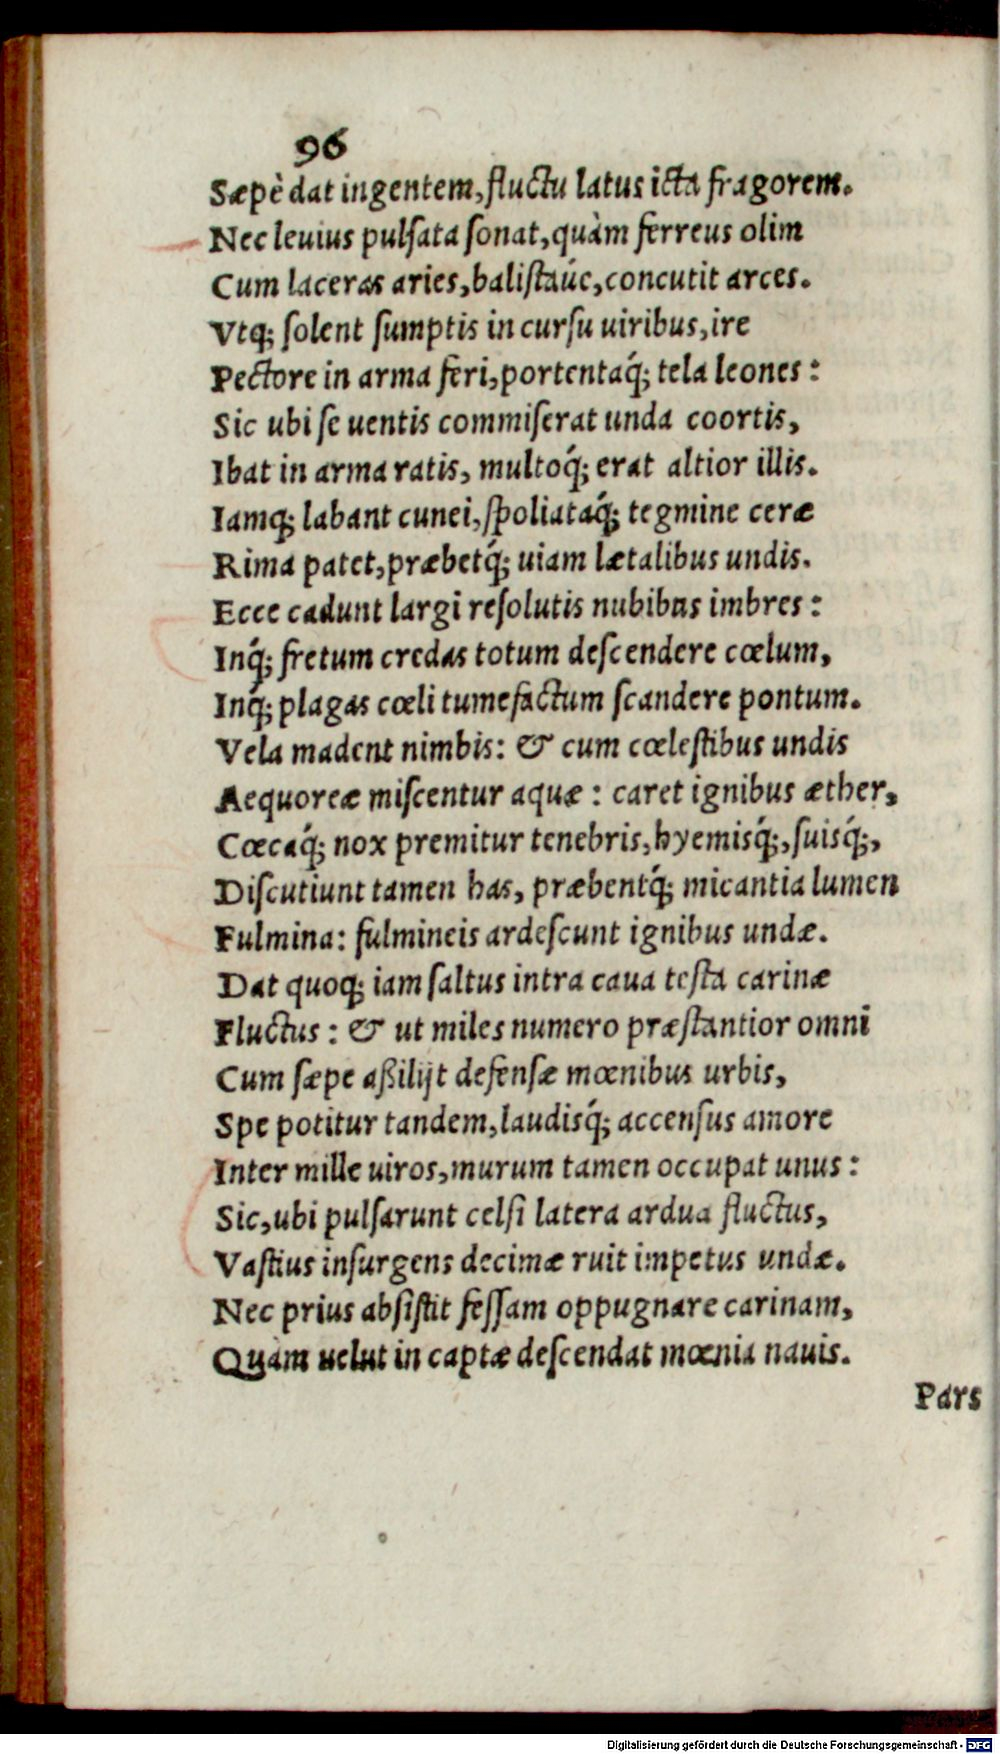 96
Sæpè dat ingentem, fluctu latus icta fragorem.
Nec leuius pulſata ſonat, quàm ferreus olim
Cum laceras aries, baliſtáue, concutit arces.
Vtq; ſolent ſumptis in curſu uiribus, ire
Pectore in arma feri, portentaq́; tela leones:
Sic ubi ſe uentis commiſerat unda coortis,
Ibat in arma ratis, multoq́; erat altior illis.
Iamq; labant cunei, ſpoliataq́; tegmine ceræ
Rima patet, præbetq́; uiam lætalibus undis.
Ecce cadunt largi reſolutis nubibus imbres:
Inq́; fretum credas totum deſcendere cœlum,
Inq́; plagas cœli tumefactum ſcandere pontum.
Vela madent nimbis: & cum cœleſtibus undis
Aequoreæ miſcentur aquæ: caret ignibus æther,
Cœcaq́; nox premitur tenebris, hyemisq́;, ſuisq́;,
Diſcutiunt tamen has, præbentq́; micantia lumen
Fulmina: fulmineis ardeſcunt ignibus undæ.
Dat quoq; iam ſaltus intra caua teſta carinæ
Fluctus: & ut miles numero præſtantior omni
Cum ſæpe aßilijt defenſæ mœnibus urbis,
Spe potitur tandem, laudisq́; accenſus amore
Inter mille uiros, murum tamen occupat unus:
Sic, ubi pulſarunt celſi latera ardua fluctus,
Vaſtius inſurgens decimæ ruit impetus undæ.
Nec prius abſiſtit feſſam oppugnare carinam,
Quàm uelut in captæ deſcendat mœnia nauis.
Pars
Digitalisierung gefördert durch die Deutsche Forschungsgemeinschaft - DFG